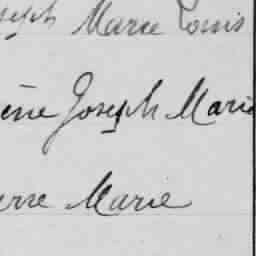 seph Marie Louis
ène Joseph Marie
erre Marie